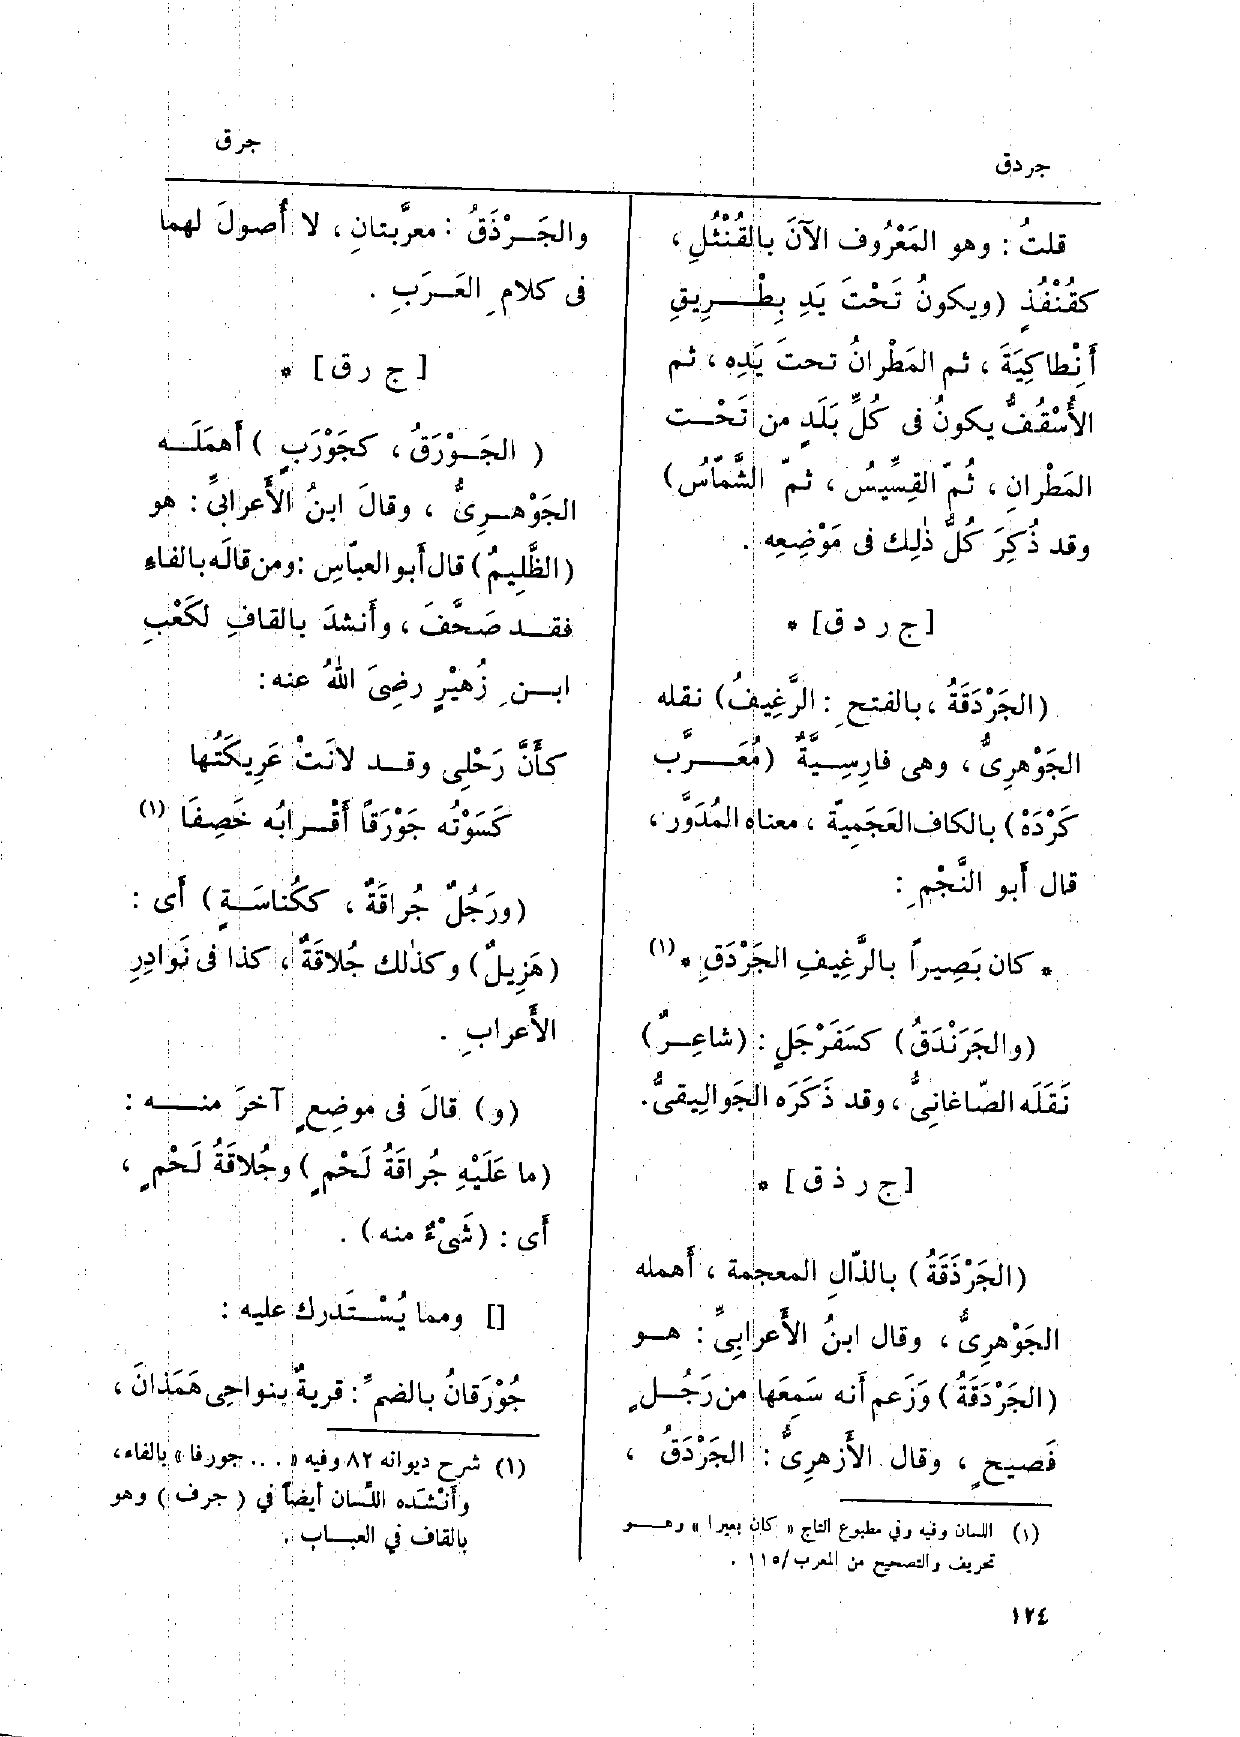 جردق
جرق
قلتُ : وهو المَعْرُوف الآنَ بالقُنْثُلِ ،
كقُنْفُذٍ (ويكونُ تَحْتَ يَدِ بِطْرِيقِ
أَنْطاكِيَةَ ، ثم المَطْرانُ تحتَ يَدِه ، ثم
الأُسْقُفُّ يكونُ فى كُلِّ بَلَدٍ من تَحْت
المَطْرانِ ، ثُمّ القِسِّيسُ ، ثمّ الشَّمّاسُ)
وقد ذُكِرَ كُلُّ ذٰلِك فى مَوْضِعِه .
[ج ر د ق] *
(الجَرْدَقَةُ ، بالفتح ِ : الرَّغِيفُ) نقله
الجَوْهرِىُّ ، وهى فارِسِيَّةٌ (مُعَرَّب
كَرْدَهْ) بالكاف العَجَمِيّة ، معناه المُدَوَّر ،
قال أَبو النَّجْم ِ :
* كان بَصِيراً بالرَّغِيفِ الجَرْدَقِ * (١)
(والجَرَنْدَقُ) كسَفَرْجَلٍ : (شاعِرٌ)
نَقَلَه الصّاغانِىُّ ، وقد ذَكَرَه الجَوالِيقىُّ.
[ج ر ذ ق] *
(الجَرْذَقَةُ) بالذّالِ المعجمة ، أَهمله
الجَوْهرِىُّ ، وقال ابنُ الأَعرابِىِّ : هو
(الجَرْدَقَةُ) وَزَعم أَنه سَمِعَها من رَجُلٍ
فَصِيح ٍ ، وقال الأَزهرِىُّ : الجَرْدَقُ ،
(١) اللسان وفيه وفي مطبوع التاج « كان بعيرا » وهو
تحريف والتصحيح من المعرب/١١٥ .
١٢٤
والجَرْذَقُ : معرَّبتانِ ، لا أُصولَ لهما
فى كلام ِ العَرَبِ .
[ج ر ق] *
( الجَوْرَقُ ، كجَوْرَبٍ ) أَهمَلَه
الجَوْهرِىُّ ، وقالَ ابنُ الأَعرابىِّ : هو
(الظَّلِيمُ) قال أَبو العبّاسِ :ومن قالَه بالفاء
فقد صَحَّفَ ، وأَنشدَ بالقافِ لكَعْبِ
ابن ِ زُهيْرٍ رضِىَ اللهُ عنه :
كأَنَّ رَحْلِى وقد لانَتْ عَرِيكَتُها
كَسَوْتُه جَوْرَقاً أَقْرابُه خَصِفَا (١)
(ورَجُلٌ جُراقَةٌ ، ككُناسَةٍ ) أَى :
(هَزِيلٌ) وكذٰلك جُلاقَةٌ ، كذا فى نَوادِرِ
الأَعرابِ .
(و) قالَ فى موضِع ٍ آخرَ منه :
(ما عَلَيْهِ جُراقَةُ لَحْم ٍ ) وجُلاقَةُ لَحْم ٍ ،
أَى : (شَىْءٌ منه) .
[] ومما يُسْتَدرك عليه :
جُوْرَقانُ بالضم ِّ : قريةٌ بنواحِى هَمَذانَ ،
(١) شرح ديوانه ٨٢ وفيه « . . . جورفا » بالفاء،
وأنْشَده اللَّسان أيضاً في ( جرف ) وهو
بالقاف في العباب .